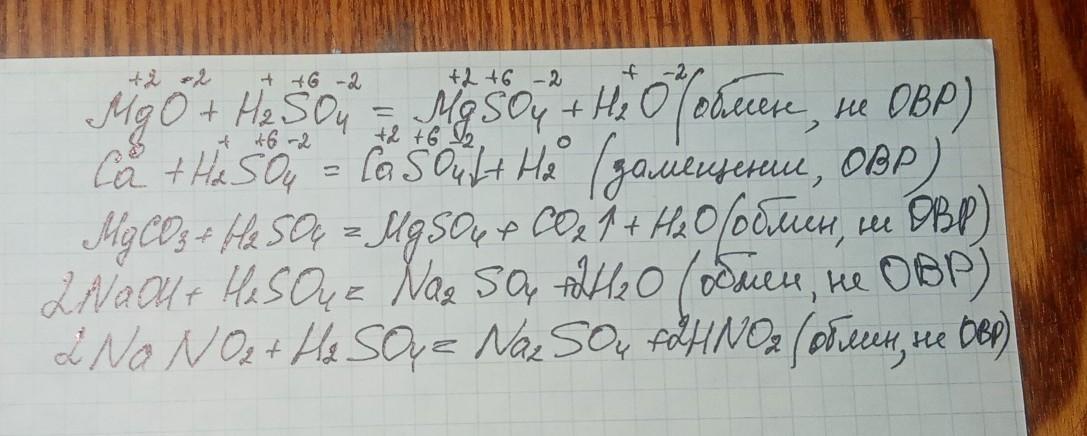 +2 -2 + +6 -2 +2 +6 -2 + -2
MgO + H₂SO₄ = MgSO₄ + H₂O (обмен, не ОВР)
0 + +6 -2 +2 +6 -2 0
Ca + H₂SO₄ = CaSO₄↓ + H₂ (замещении, ОВР)
MgCO₃ + H₂SO₄ = MgSO₄ + CO₂↑ + H₂O (обмен, не ОВР)
2NaOH + H₂SO₄ = Na₂SO₄ + 2H₂O (обмен, не ОВР)
2NaNO₂ + H₂SO₄ = Na₂SO₄ + 2HNO₂ (обмен, не ОВР)